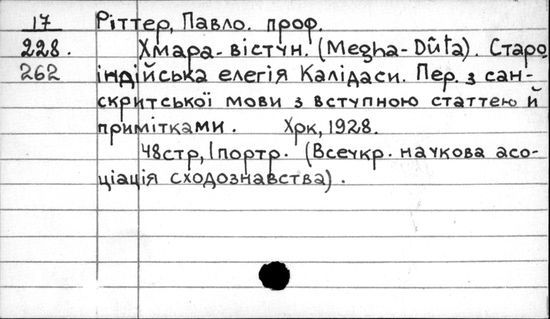 17 Ріттер, Павло. проф.
228. Хмара-вістун. (Megha-Dûta). Старо
262 індійська елегія Калідаси. Пер. з сан-
скритської мови з вступною статтею й
примітками. Хрк, 1928.
48стр, 1портр. (Всеукр. наукова асо-
ціація сходознавства).